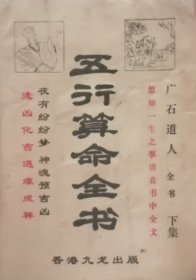 广石道人 全书 下集
想知一生之事请看书中全文
五行算命全书
夜有纷纷梦 神魂预吉凶
逢凶化吉遇难成祥
香港九龙出版